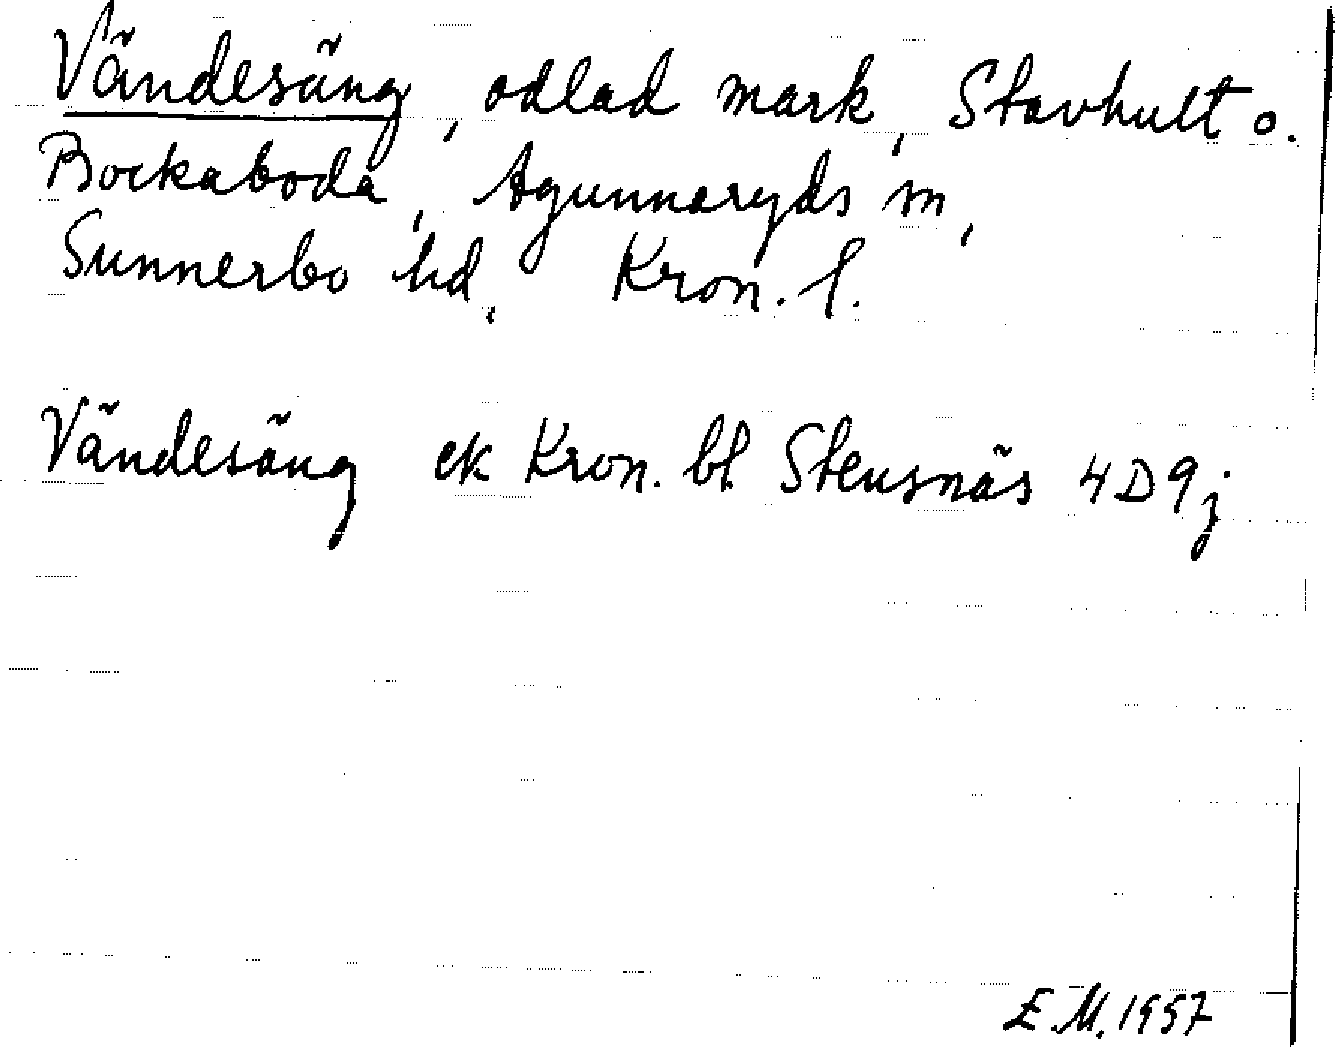 Vändesäng, odlad mark, Stavhult o.
Bockaboda, Agunnaryds sn,
Sunnerbo hd, Kron. l.
Vändesäng ek Kron. bl Stensnäs 4D9j
E.M. 1957